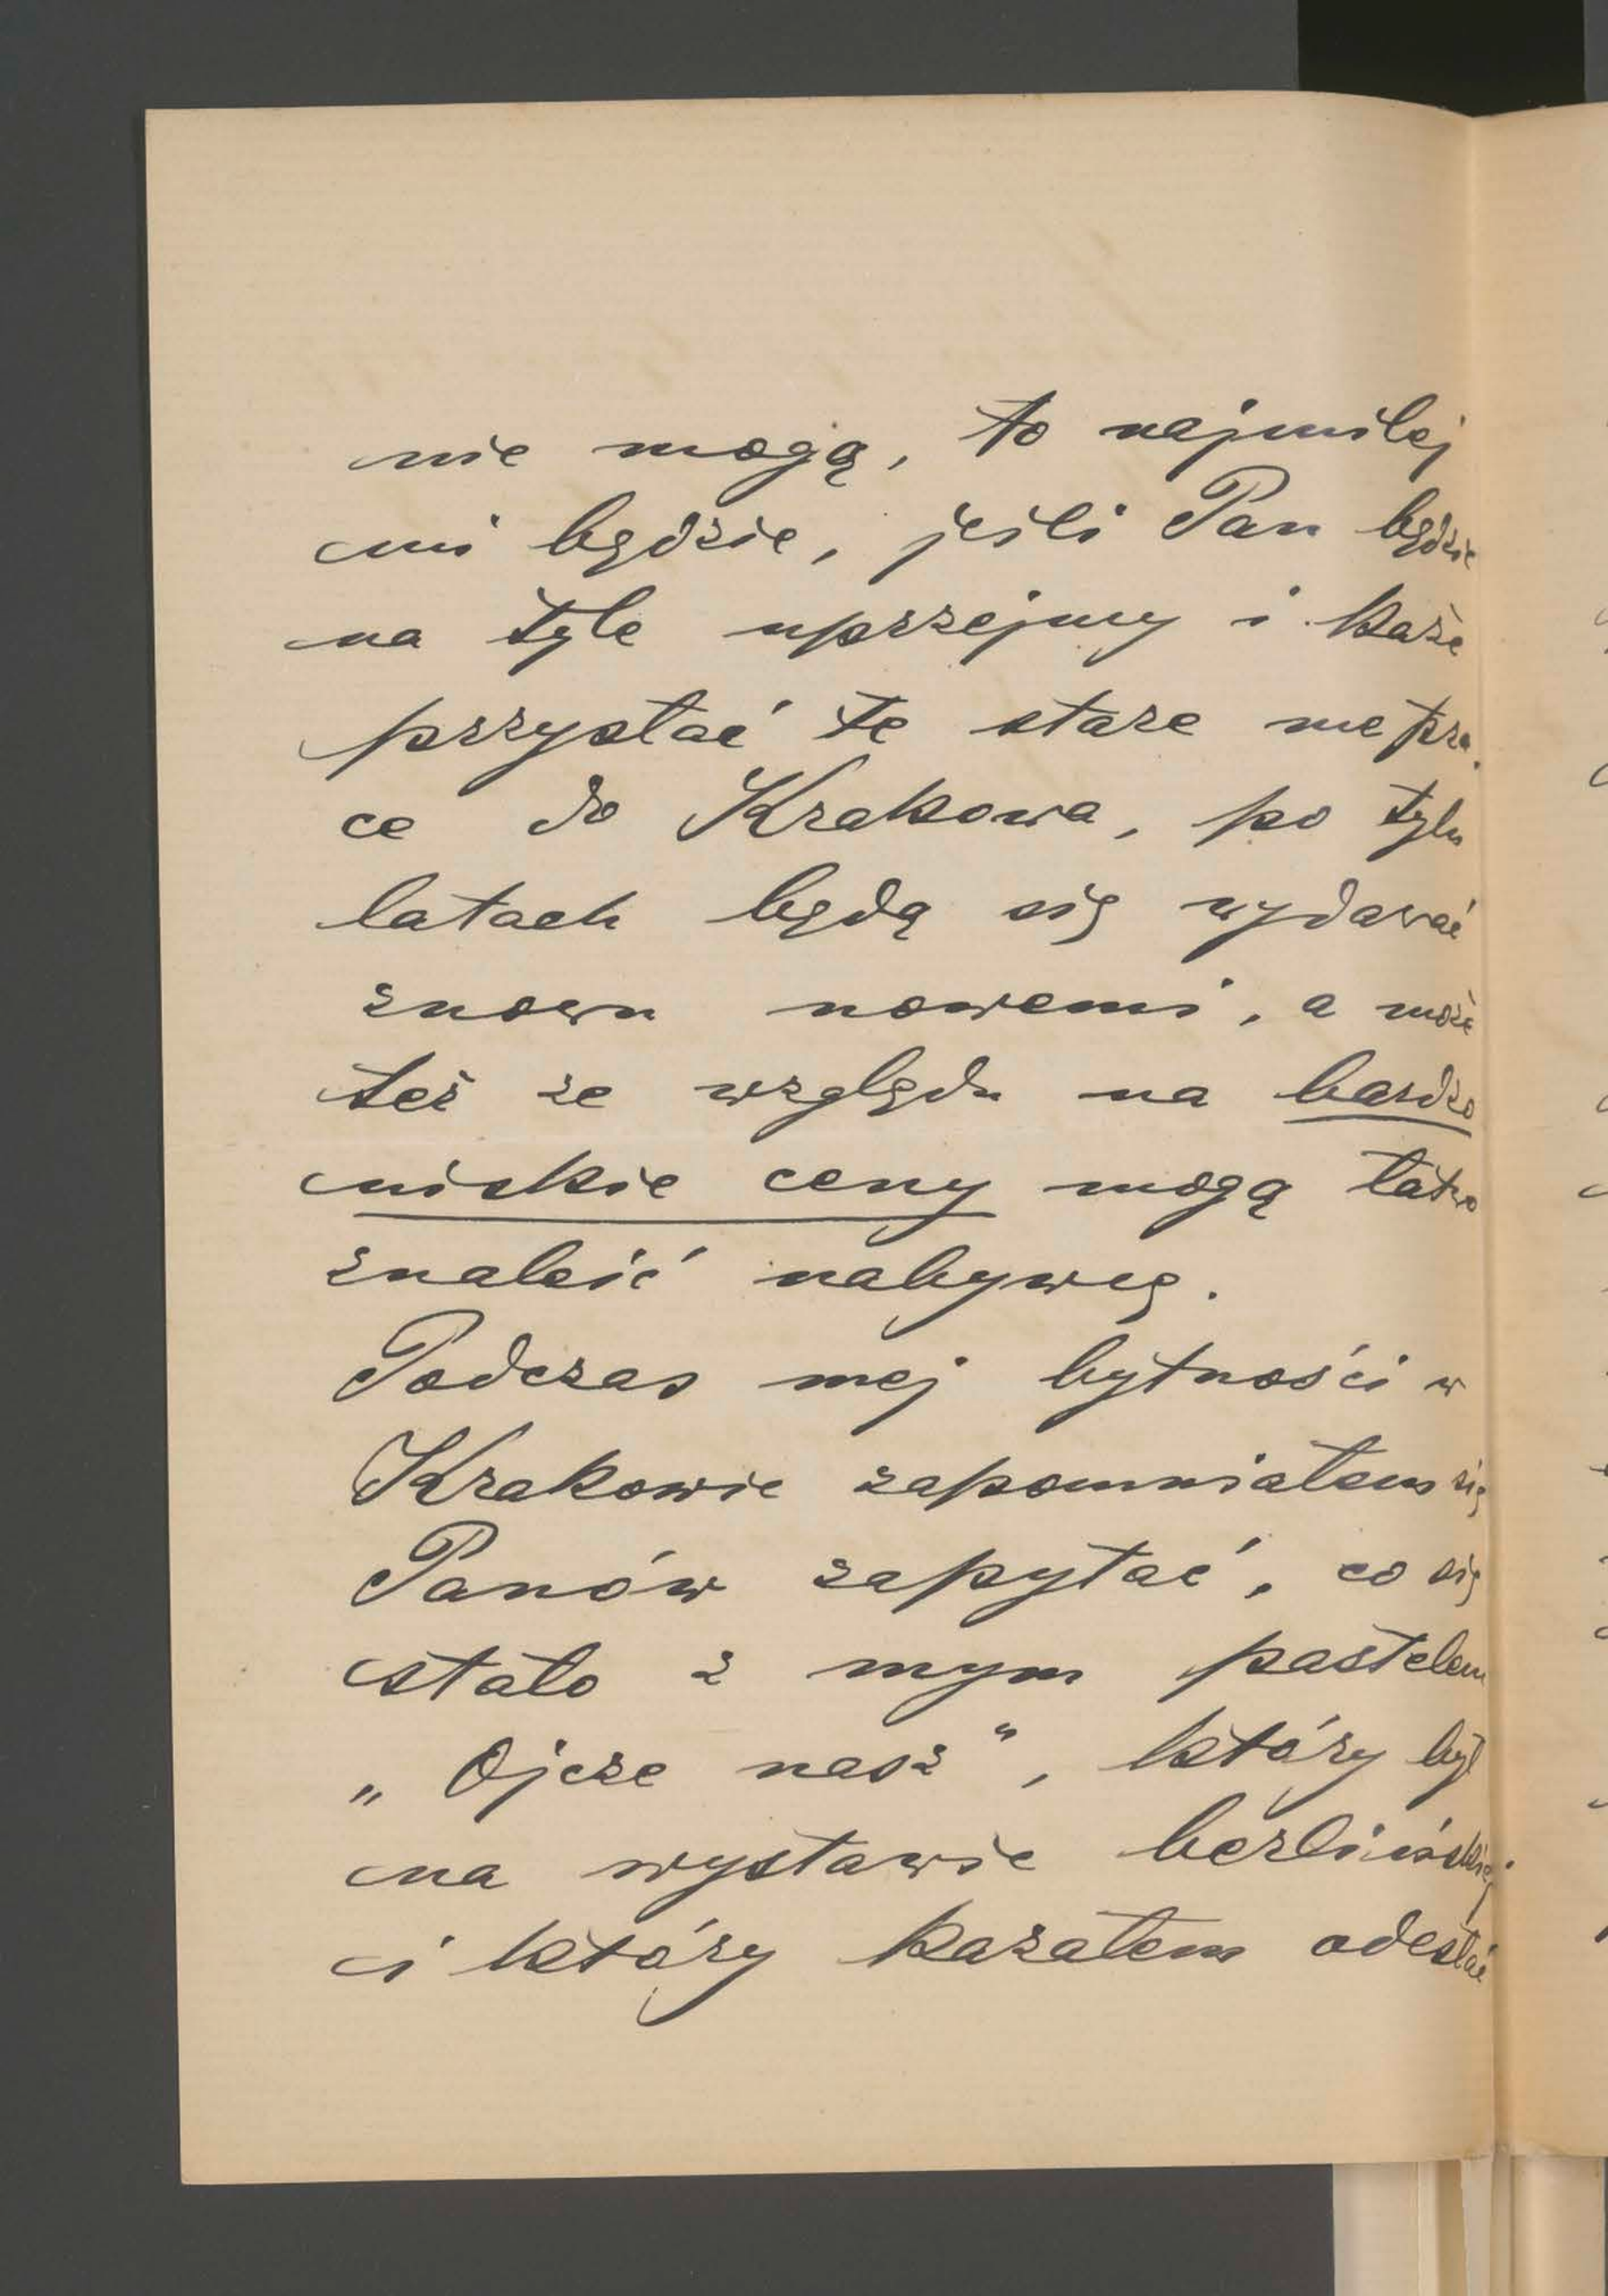 nie mogą, to najmilej
mi będzie, jeśli Pan będzie
na tyle uprzejmy i każe
przysłać te stare me pra-
ce do Krakowa, po tylu
latach będą się wydawać
znowu nowemi, a może
też ze względu na bardzo
niskie ceny mogą łatwo
znaleść nabywcę.
Podczas mej bytności w
Krakowie zapomniałem się
Panów zapytać, co się
stało z mym pastelem
„Ojcze nasz", który był
na wystawie berlińskiej
i który kazałem odesłać